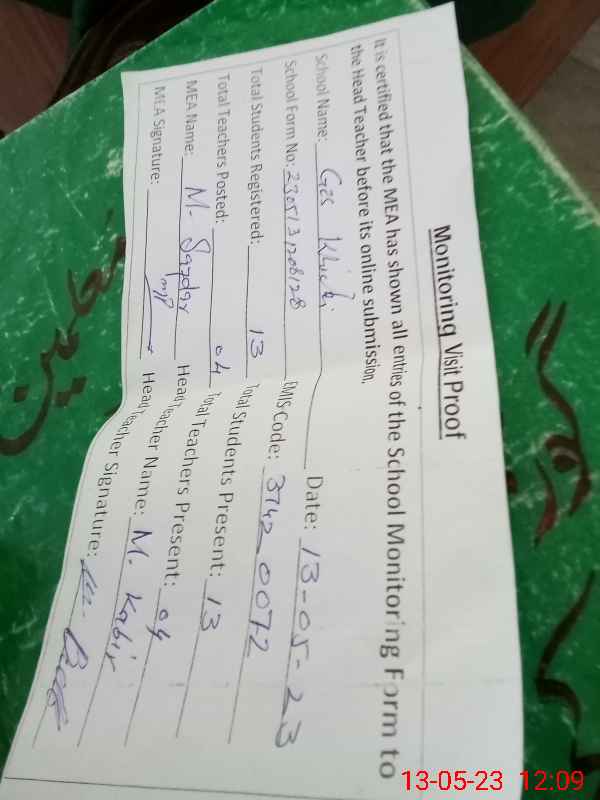 Monitoring Visit Proof
It is certified that the MEA has shown all entries of the School Monitoring Form to
the Head Teacher before its online submission.
School Name: Ges Date: 13-05-23
School Form No: EMIS Code: 37420072
Total Students Registered: 13 Total Students Present: 13
Total Teachers Posted: 04 Total Teachers Present: 04
MEA Name: M. Safdar Head Teacher Name: M. Kabir
MEA Signature: Head Teacher Signature:
معلمین
13-05-23 12:09